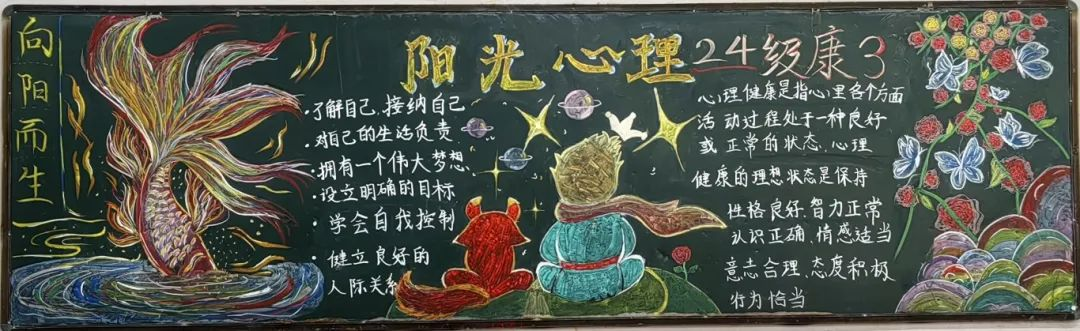 向阳而生
阳光心理 24级康3
·了解自己、接纳自己
对自己的生活负责
·拥有一个伟大梦想、
设立明确的目标
·学会自我控制
·健立良好的
人际关系
心理健康是指心里各个方面
活动过程处于一种良好
或正常的状态、心理
健康的理想状态是保持
性格良好、智力正常
认识正确、情感适当
意志合理、态度积极
行为恰当